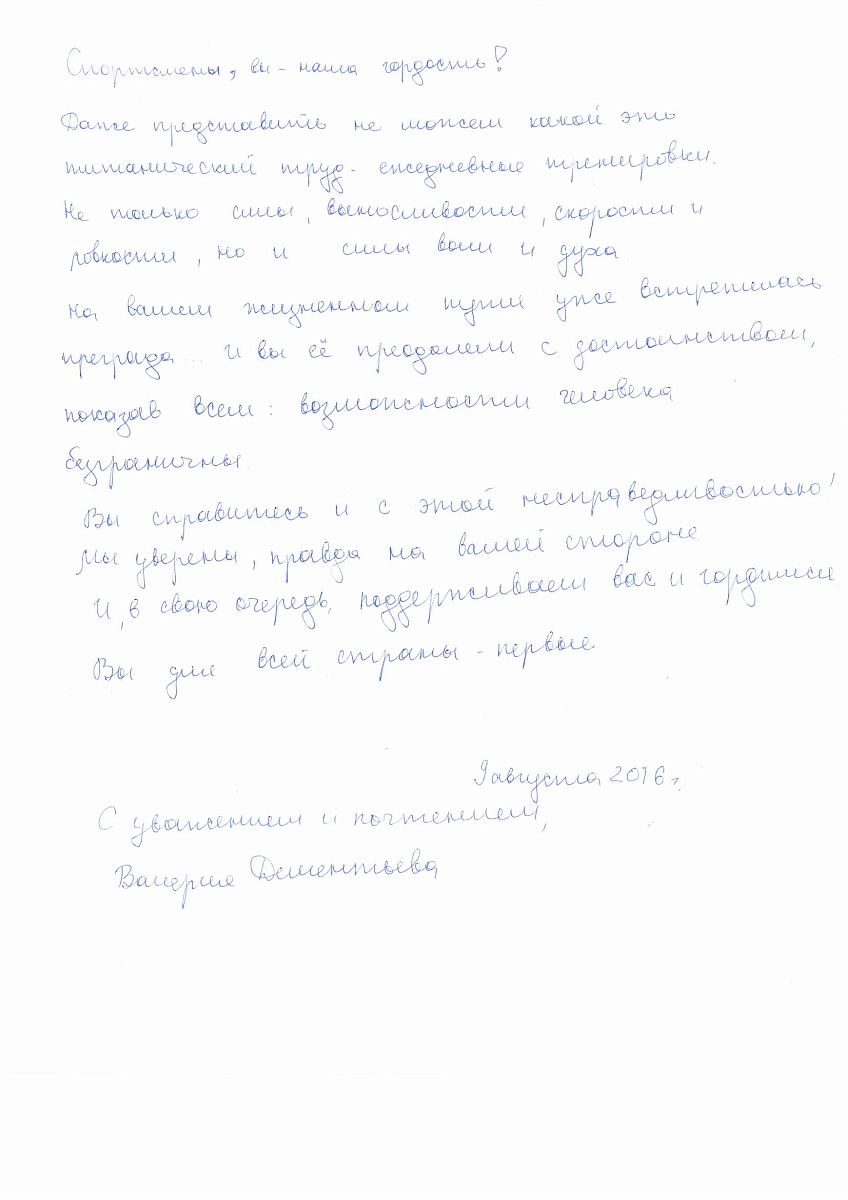 Спортсмены, вы - наша гордость!
Даже представить не можем какой это
титанический труд - ежедневные тренировки.
Не только силы, выносливости, скорости и
ловкости, но и силы воли и духа
На вашем жизненном пути уже встретилась
преграда... И вы её преодолели с достоинством,
показав всем: возможности человека
безграничны
Вы справитесь и с этой несправедливостью!
Мы уверены, правда на вашей стороне
И, в свою очередь, поддерживаем вас и гордимся
Вы для всей страны - первые
9 августа 2016 г.
С уважением и почтением,
Валерия Дементьева